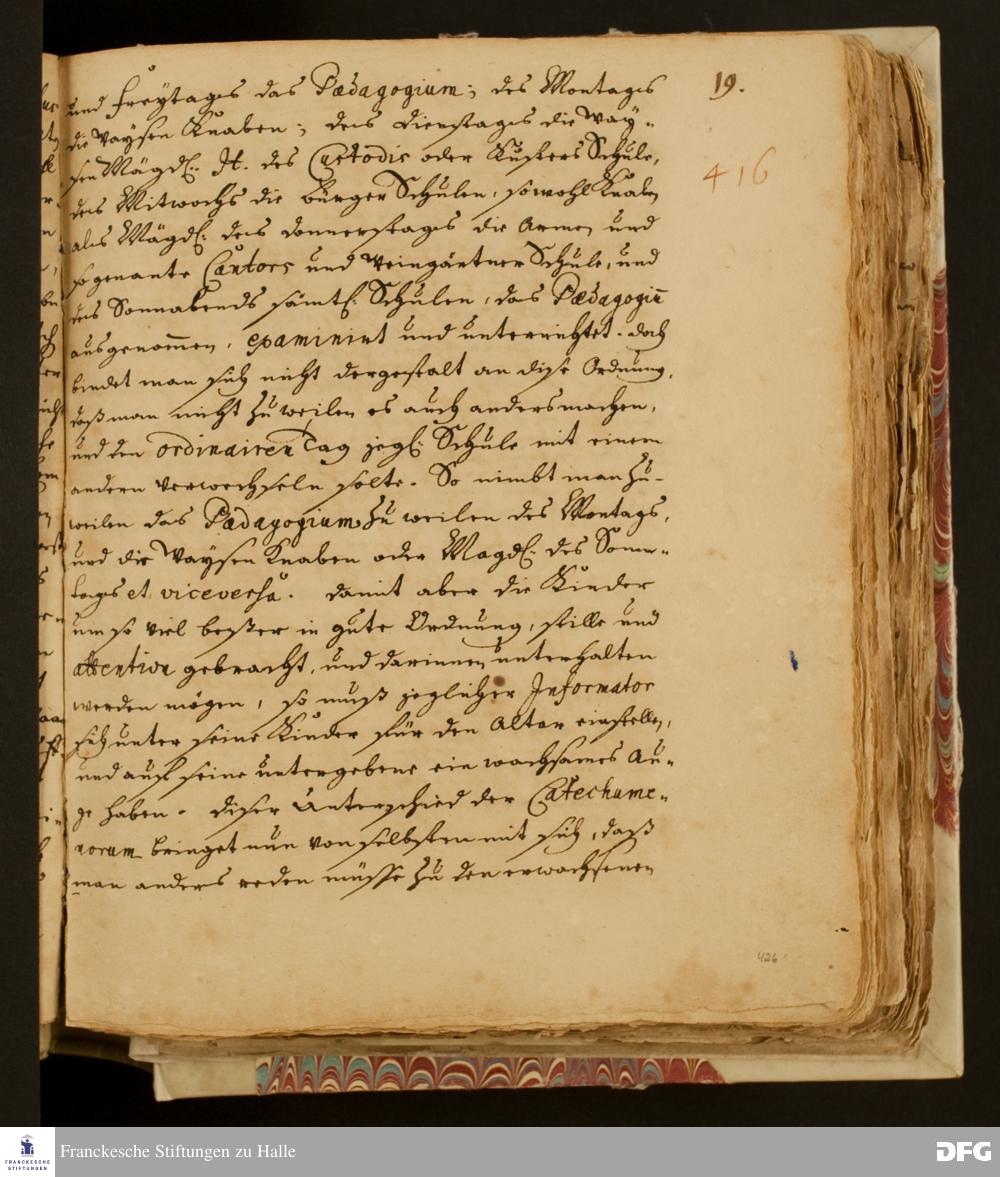 19.
und Freytages das Pædagogium; des Montages
die Waysen Knaben; des Dienstages die Way-
sen Mägdl. It. des Custodis oder Küsters Schule,
des Mitwochs die Bürger Schulen, sowohl Knaben
als Mägdl: des Donnerstages die Armen und
so genante Cantors und Weingärtner Schule, und
des Sonnabends sämtl. Schulen, das Pædagogiū
ausgenom̄en, examiniret und unterrichtet. doch
bindet man sich nicht dergestalt an dise Ordnung,
daß man nicht zuweilen es auch anders machen,
und den ordinairen Tag jegl. Schule mit einem
andern verwechseln solte. So nimbt man zu-
weilen das Pædagogium zuweilen des Montags,
und die Waysen Knaben oder Mägdl. des Sonn-
tages et viceversâ. Damit aber die Kinder
um so viel beßer in gute Ordnung, stille und
attention gebracht, und darinnen unterhalten
werden mögen, so muß jeglicher Informator
sich unter seine Kinder für den Altar einstellen,
und auf seine untergebene ein wachsames Au-
ge haben. Diser Unterschied der Catechume-
norum bringet nun von selbsten mit sich, daß
man anders reden müsse zu den erwachsenen
416
426
Franckesche Stiftungen zu Halle
FRANCKESCHE
STIFTUNGEN
DFG